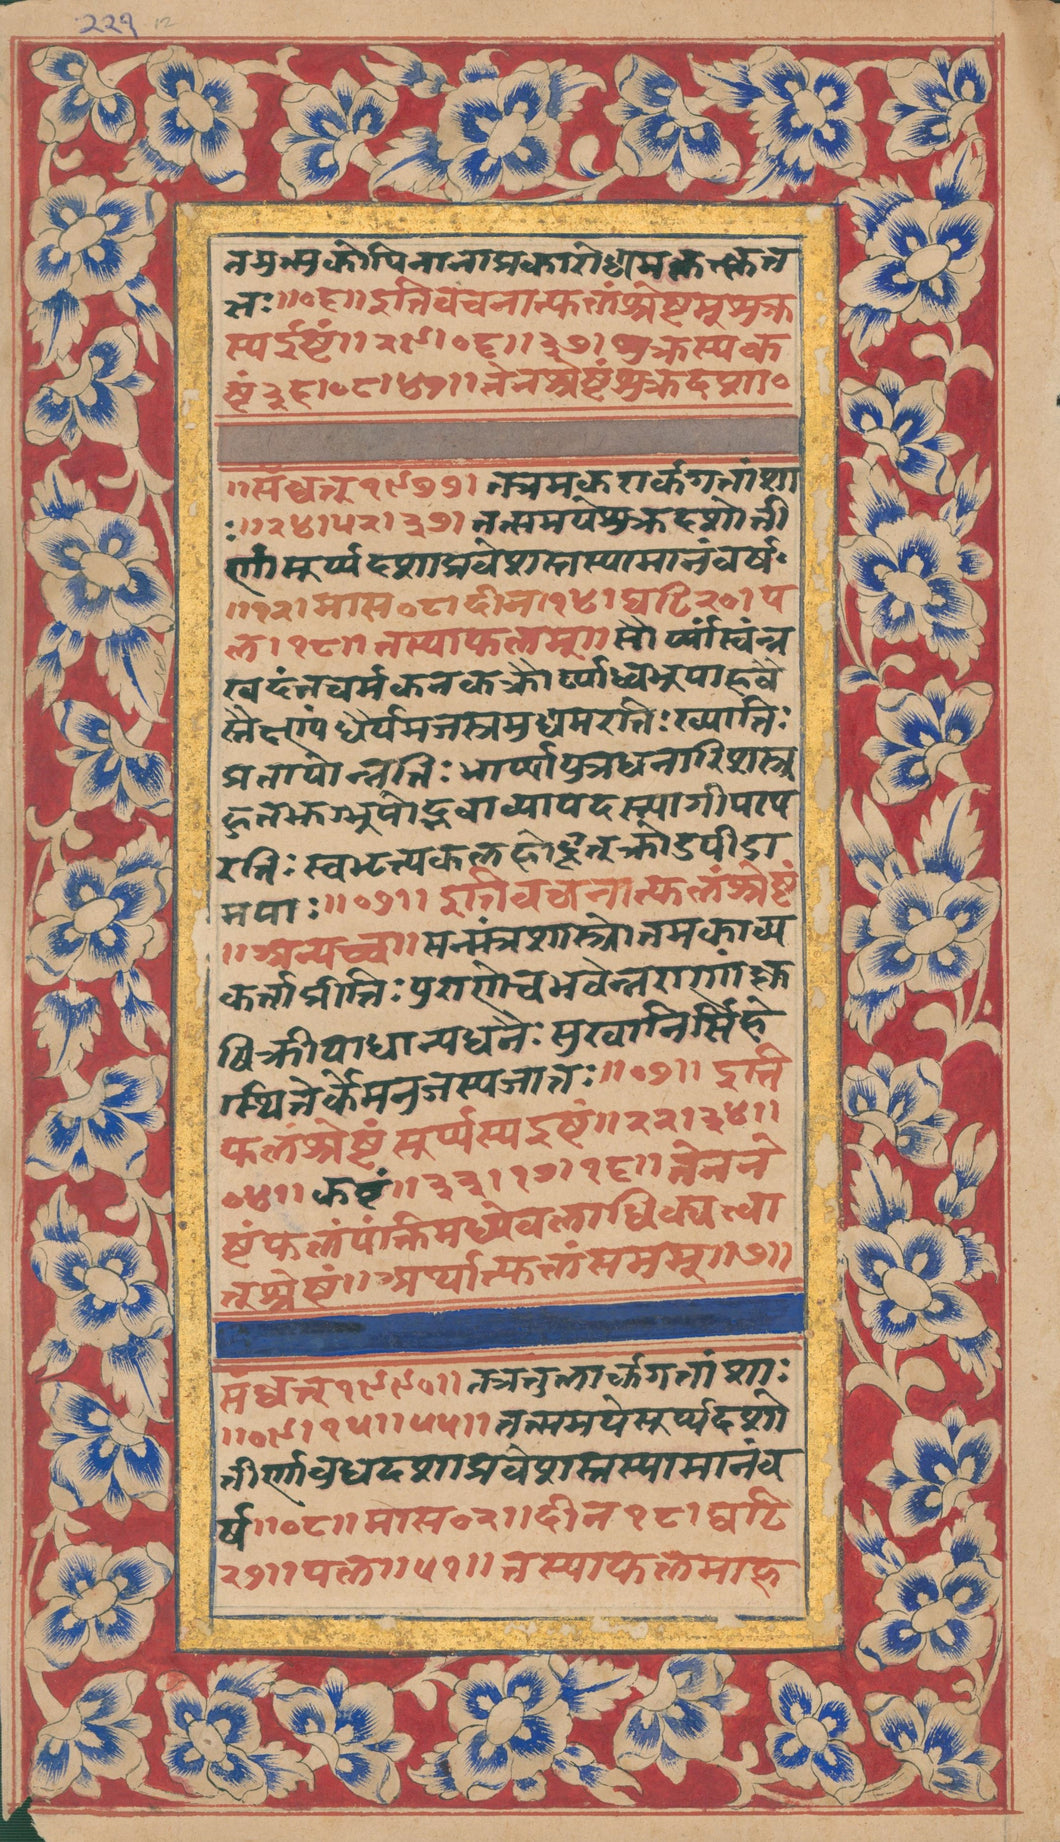 २२१ १२
नभ्रम्रकोपिनानाप्रकारोद्यमकृत्कृत
ज्ञः॥०६॥इतिवचनात्फलंश्रेष्टमुशुक्र
स्यईष्टं॥२९।०६॥३७।शुक्रस्यक
ष्टं३६।०८।४१॥तेनश्रेष्टंशुक्रदशा०
॥संब्वत्१९७७।तत्रमकरार्कगतांशा
ः॥२४।५२।३७।तत्समयेशुक्रदशोत्ती
र्णासूर्य्यदशाप्रवेशस्तस्यामानंवर्षः
॥१२।मास०८।दीन।१४।घटि२०।प
ल।१८॥तस्याफलमू॥सौर्य्यांस्वंन
खदंतचर्मकनकक्रौर्य्याध्वभूपाहवै
स्तैक्ष्ण्यंधैर्यमजस्त्रमुद्यमरतिःख्यातिः
प्रतापोन्नतिःभार्य्यापुत्रधनारिशस्त्र
हुतभुग्भूपोद्भवाव्यापदस्त्यागीपाप
रतिःस्वभृत्यकलहोहृत्क्रोडपीडा
मयाः॥०७॥इतिवचनात्फलंश्रेष्टं
॥अन्यच्च॥सन्मंत्रशास्त्रोत्तमकाव्य
कर्त्ताप्रीतिःपुराणेचभवेन्नराणांकृ
षिक्रीयाधान्यधनैःसुखानिर्सिंहे
र्स्थितेर्केमनुजस्यजातः॥०७॥इति
फलंश्रेष्टंसूर्य्यस्यइष्टं॥२२।३४॥
०४॥कष्टं॥३३।१७।१६॥तेनने
ष्टंफलंपंक्तिमध्येवलाधिक्यत्वा
त्श्रेष्टं॥अर्थात्फलंसममू॥७॥
संब्वत्१९९०॥तत्रतुलार्कगतांशाः
॥०९।१५॥५५॥तत्समयेसूर्य्यदशो
त्तीर्णाबुधदशाप्रवेशस्तस्यामानंव
र्ष॥०८॥मास०२॥दीन१८।घटि
२७॥पल॥५१॥तस्याफलमाह